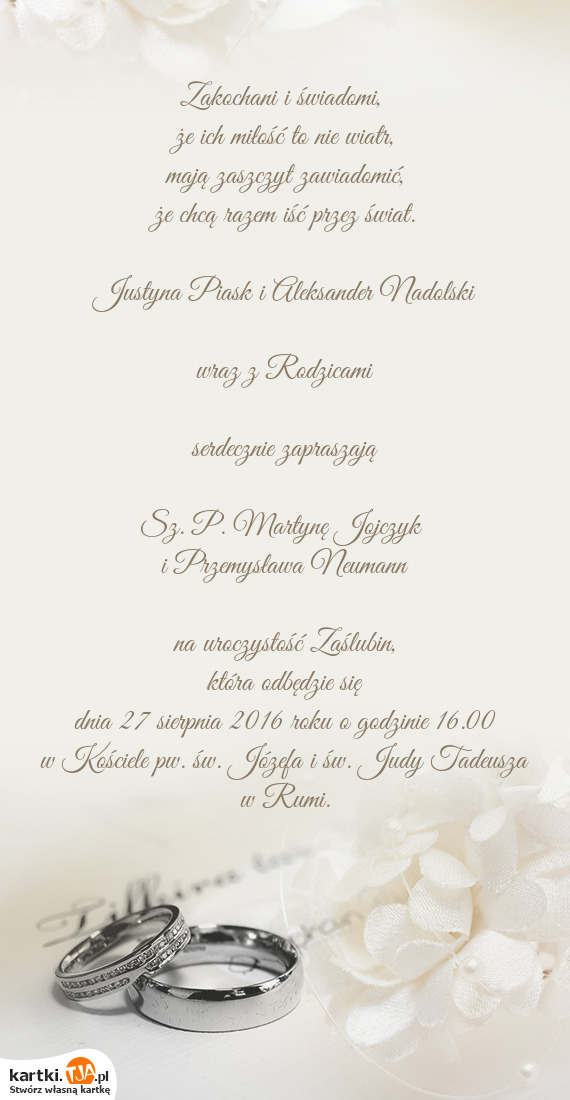 Zakochani i świadomi,
że ich miłość to nie wiatr,
mają zaszczyt zawiadomić,
że chcą razem iść przez świat.
Justyna Piask i Aleksander Nadolski
wraz z Rodzicami
serdecznie zapraszają
Sz. P. Martynę Jojczyk
i Przemysława Neumann
na uroczystość Zaślubin,
która odbędzie się
dnia 27 sierpnia 2016 roku o godzinie 16.00
w Kościele pw. św. Józefa i św. Judy Tadeusza
w Rumi.
kartki.TJA.pl
Stwórz własną kartkę